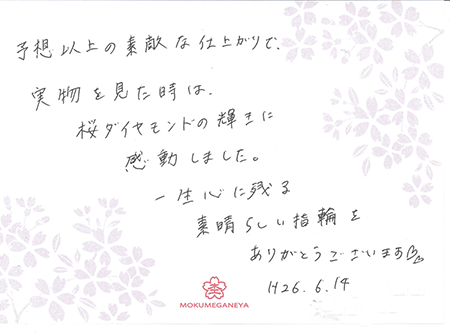 予想以上の素敵な仕上がりで、
実物を見た時は、
桜ダイヤモンドの輝きに
感動しました。
一生心に残る
素晴らしい指輪を
ありがとうございます
H26.6.14
MOKUMEGANEYA